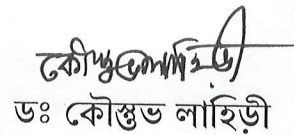 কৌস্তুভ লাহিড়ী
ডঃ কৌস্তুভ লাহিড়ী